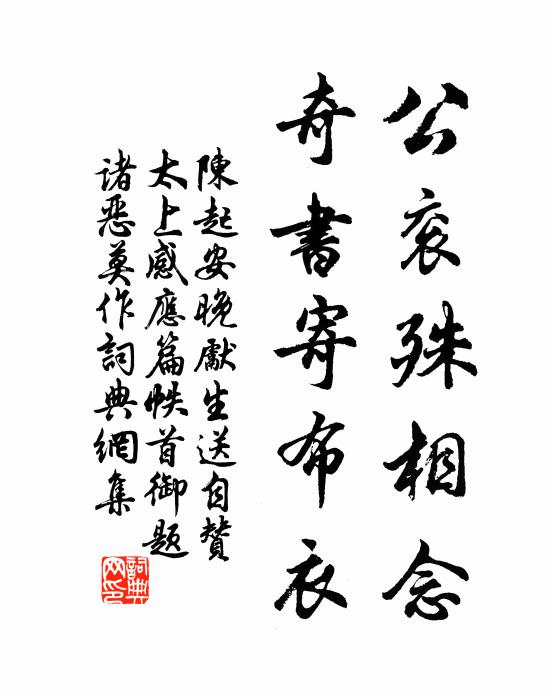 公衮殊相念
奇書寄布衣
陳起安晚獻生送自贊
太上感應篇帙首御題
諸惡莫作詞典網集
詞典
网印